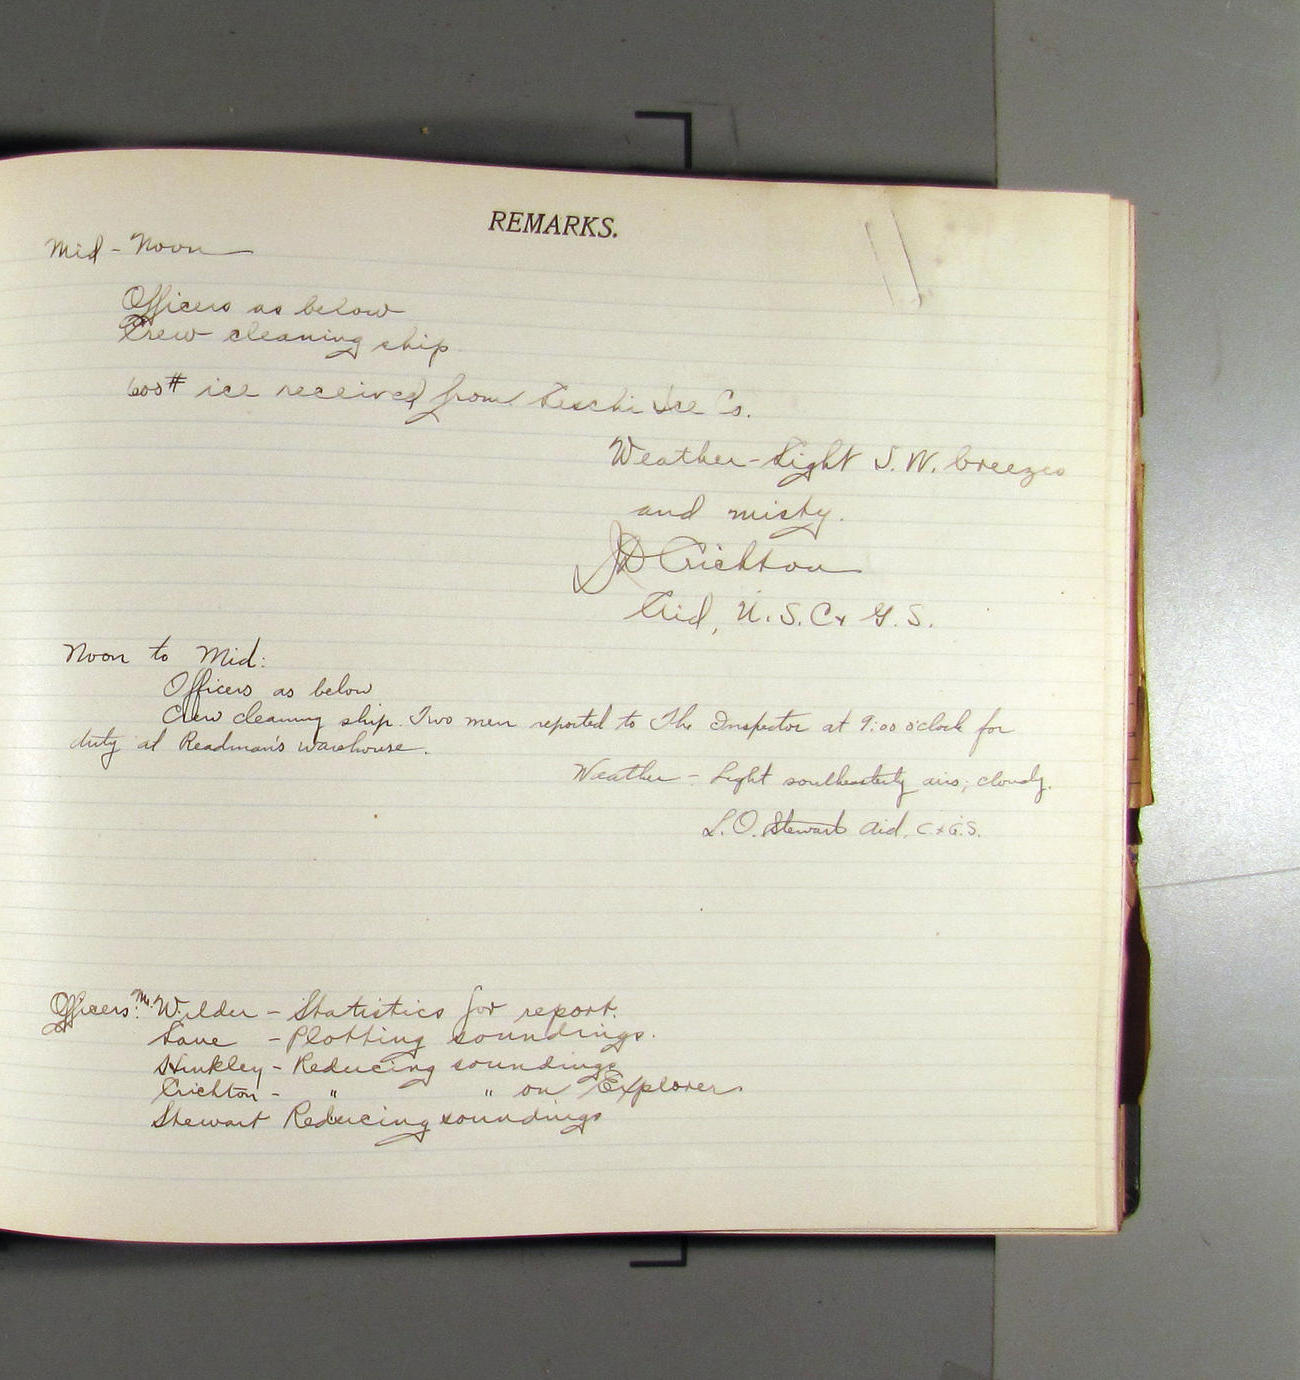 REMARKS.
Mid - Noon
Officers as below
Crew cleaning ship
600# ice received from Leschi Ice Co.
Weather - Light S.W. breezes
and misty.
JD Crichton
Aid, U.S.C & G.S.
Noon to Mid:
Officers as below
Crew cleaning ship. Two men reported to The Inspector at 9:00 o'clock for
duty at Readman's warehouse.
Weather - Light southeasterly airs; cloudy.
L.O. Stewart Aid, C & G.S.
Officers: Mr. Wilder - Statistics for report.
- Plotting soundings.
Hinkley - Reducing soundings
Crichton - " " on Explorer
Stewart Reducing soundings